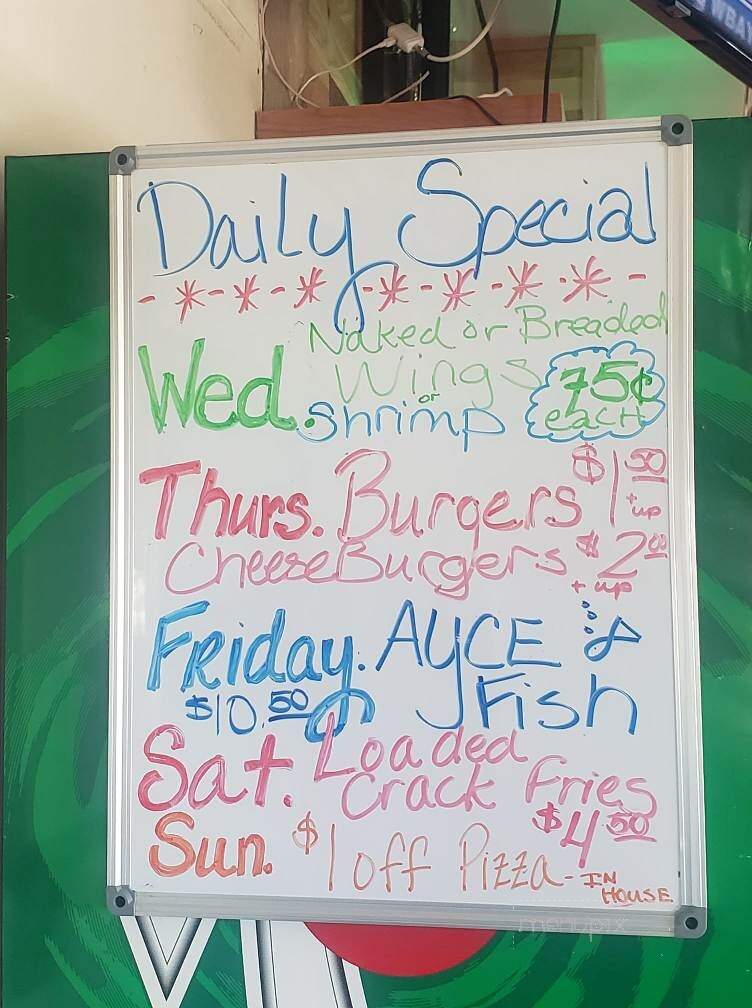 Daily Special
- * - * - * - * - * - * - * -
Naked or Breaded
Wed. Wings 75¢
or
Shrimp each
Thurs. Burgers $1 50
+ up
CheeseBurgers $2 00
+ up
Friday. AYCE
$10.50 Fish
Sat. Loaded
Crack Fries
$4 50
Sun. $1 off Pizza - IN
HOUSE
menupix
WBAY